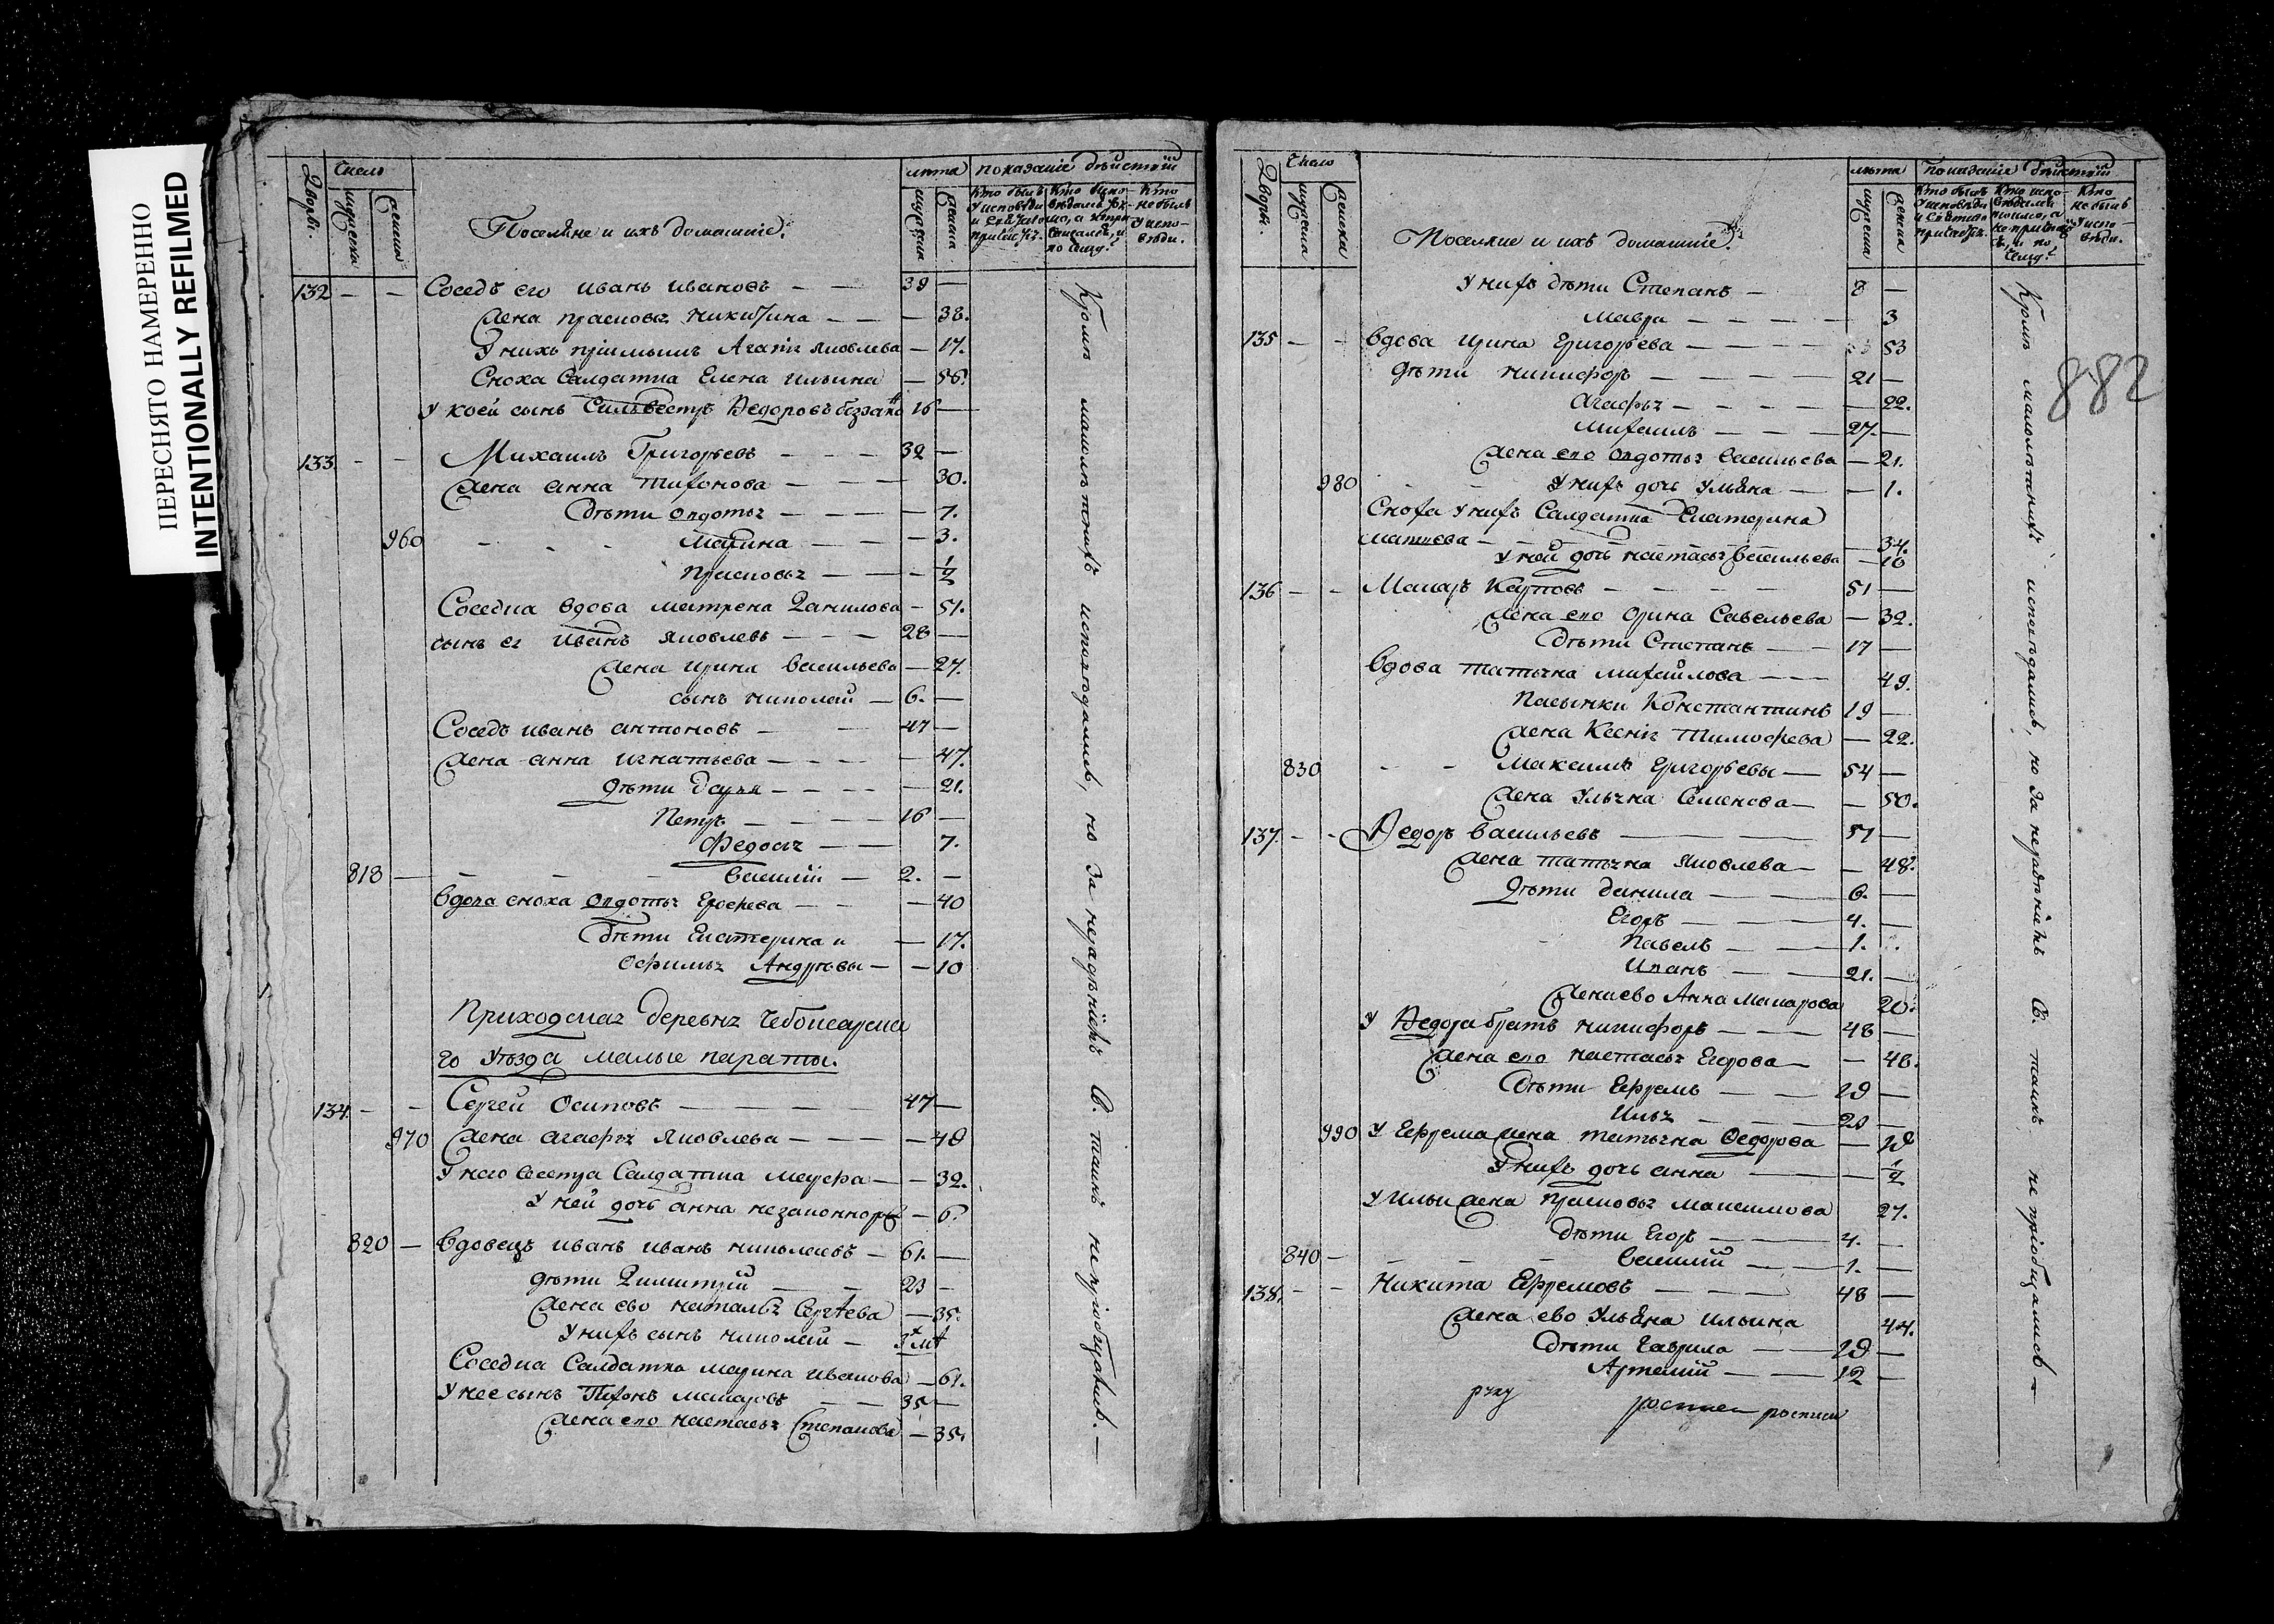 ПЕРЕСНЯТО НАМЕРЕННО
INTENTIONALLY REFILMED
Дворы.
Число
мужеска
женска
Поселяне и ихъ домашніе.
лѣта
мужеска
женска
показаніе дѣйствій
Кто былъ у исповѣди и святаго причастія.
Кто не былъ у исповѣди.
132 Соседъ его иванъ ивановъ 39
жена прасковья никитина 38.
У нихъ пріимышъ Агапія яковлева 17.
Сноха Салдатка Елена ильина
у коей сынъ Сильвестръ Ѳедоровъ 16
133 Михаилъ Григорьевъ 32
жена анна тихонова 30.
дѣти Овдотья 7.
960 Марина 3.
прасковья 1/2
Соседка вдова матрена данилова 51.
сынъ ея Иванъ яковлевъ 28
жена ирина васильева 27.
сынъ николай 6.
Соседъ иванъ антоновъ 47
жена анна игнатьева 47.
дѣти дарья 21.
Петръ 16
Федосья 7.
818 василій 2.
вдова сноха Овдотья Ерофеева 40
дѣти Екатерина и 17.
Офимья Андрѣевы 10
Приходская деревня Чебоксарска
го уѣзда малые параты.
134 Сергей Осиповъ 47
970 жена агафья яковлева 48
у него сестра Салдатка марфа 32.
у ней дочь анна незаконнорж 6.
820 вдовецъ иванъ иванъ николаевъ 61.
дѣти димитрій 23
жена ево наталья Сергѣева 35.
у нихъ сынъ николай 3 м
Соседка Салдатка марина иванова 61.
у нее сынъ Тихонъ макаровъ 35
жена ево настасья Степанова 35.
Кромѣ малолѣтнихъ исповѣдались, но за нерадѣніемъ св. таинъ не пріобщались.
882
Дворы.
Число
мужеска
женска
Поселяне и ихъ домашніе.
лѣта
мужеска
женска
Показаніе дѣйствій
Кто былъ у исповѣди и святаго причастія.
Кто не былъ у исповѣди.
У нихъ дѣти Степанъ 8
мавра 3
135 вдова ирина григорьева 53
дѣти никифоръ 21
агафья 22.
михаилъ 27.
жена ево Овдотья васильева 21.
980 у нихъ дочь Ульяна 1.
Сноха у нихъ Салдатка Екатерина
матвѣева 34.
у ней дочь настасья васильева 16
136 Макаръ Карповъ 51
жена ево Орина Савельева 32.
дѣти Степанъ 17
вдова татьяна михайлова 49.
пасынки Константинъ 19
жена Ксенія тимофеева 22.
830 Максимъ григорьевы 54
жена ульяна Семенова 50.
137. Ѳедоръ васильевъ 51
жена татьяна яковлева 48.
дѣти данила 6.
Егоръ 4.
павелъ 1.
Иванъ 21.
жена ево Анна макарова 20.
У Ѳедора братъ никифоръ 48
жена ево настасья Егорова 48.
дѣти Ефремъ 29
илья 20
990 у Ефрема жена татьяна Ѳедорова
у нихъ дочь анна 1/2
у ильи жена прасковья максимова 27.
дѣти Егоръ 4.
840 василій 1.
138. Никита Ефремовъ 48
жена ево ульяна ильина 44.
дѣти Гаврила 19
Артемій 12
Кромѣ малолѣтнихъ исповѣдались, но за нерадѣніемъ св. таинъ не пріобщались
росписи